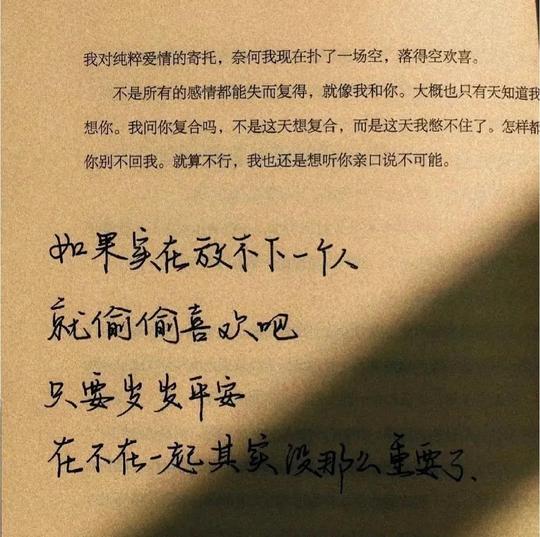 我对纯粹爱情的寄托，奈何我现在扑了一场空，落得空欢喜。
不是所有的感情都能失而复得，就像我和你。大概也只有天知道我
想你。我问你复合吗，不是这天想复合，而是这天我憋不住了。怎样都
你别不回我。就算不行，我也还是想听你亲口说不可能。
如果实在放不下一个人
就偷偷喜欢吧
只要岁岁平安
在不在一起其实没那么重要了、